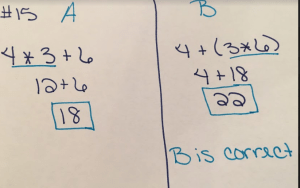 #15 A
4 * 3 + 6
12 + 6
18
B
4 + (3 * 6)
4 + 18
22
B is correct